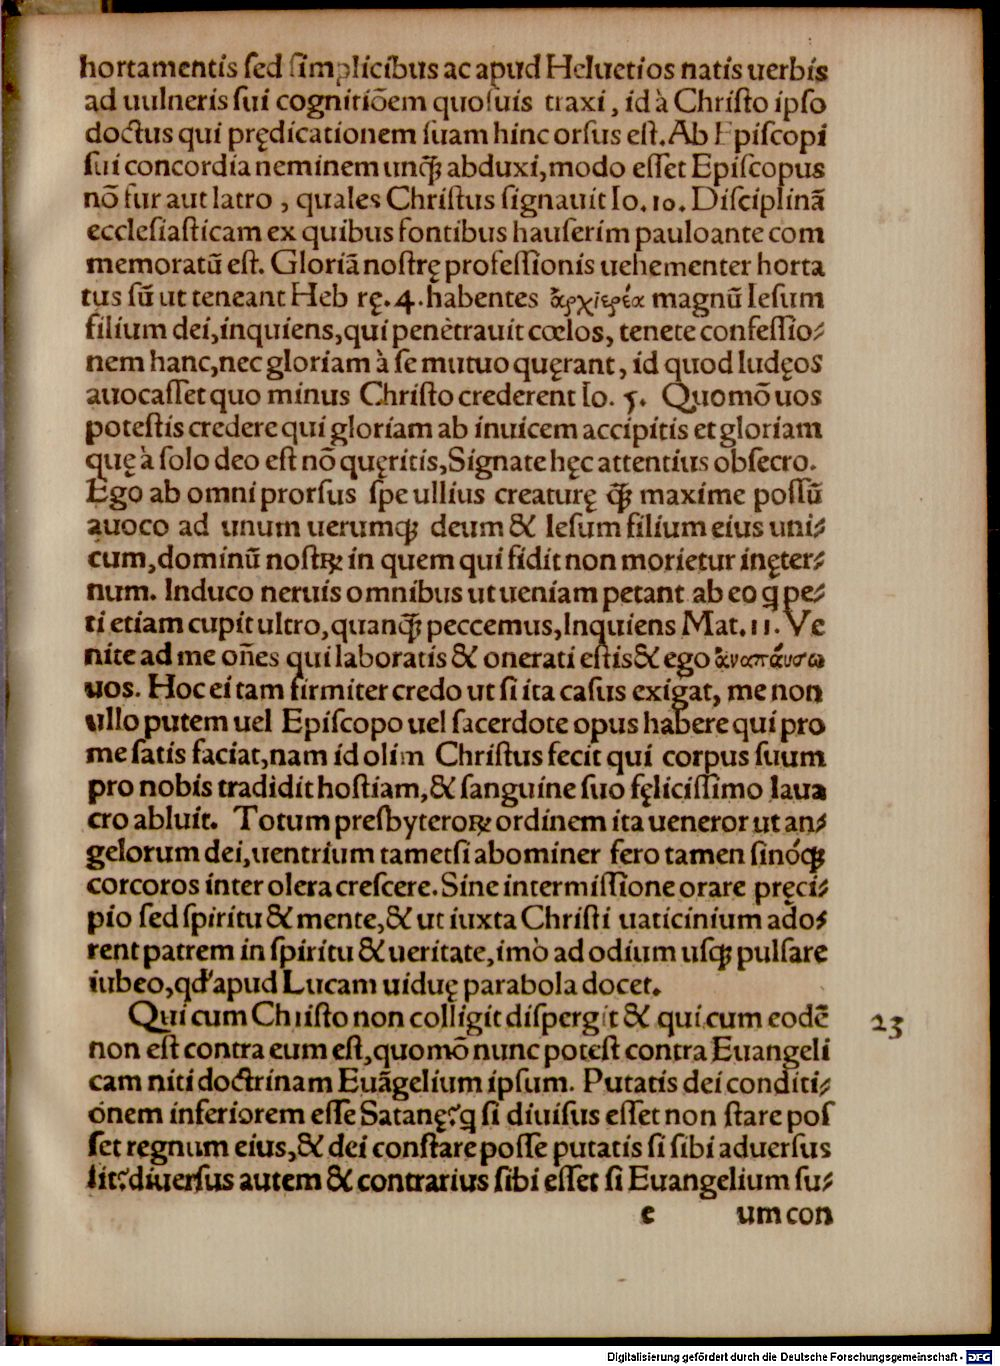 hortamentis ſed ſimplicibus ac apud Heluetios natis uerbis
ad uulneris ſui cognitiõem quoſuis traxi, id à Chriſto ipſo
doctus qui prędicationem ſuam hinc orſus eſt. Ab Epiſcopi
ſui concordia neminem unꝙ̃ abduxi, modo eſſet Epiſcopus
nõ fur aut latro, quales Chriſtus ſignauit Io. 10. Diſciplinã
eccleſiaſticam ex quibus fontibus hauſerim pauloante com
memoratũ eſt. Gloriã noſtrę profeſſionis uehementer horta
tus sũ ut teneant Heb rę. 4. habentes ἀρχιερέα magnũ Ieſum
filium dei, inquiens, qui penètrauit cœlos, tenete confeſſio⸗
nem hanc, nec gloriam à ſe mutuo quęrant, id quod Iudęos
auocaſſet quo minus Chriſto crederent Io. 5. Quomõ uos
poteſtis credere qui gloriam ab inuicem accipitis et gloriam
quę à ſolo deo eſt nõ quęritis, Signate hęc attentius obſecro.
Ego ab omni prorſus ſpe ullius creaturę ꝙ̃ maxime poſſũ
auoco ad unum uerumqꝫ deum & Ieſum filium eius uni⸗
cum, dominũ noſtꝝ in quem qui fidit non morietur inęter⸗
num. Induco neruis omnibus ut ueniam petant ab eo q pe⸗
ti etiam cupit ultro, quanꝙ̃ peccemus, Inquiens Mat. 11. Ve
nite ad me oñes qui laboratis & onerati eſtis & ego ἀναπαύσω
uos. Hoc ei tam firmiter credo ut ſi ita caſus exigat, me non
ullo putem uel Epiſcopo uel ſacerdote opus habere qui pro
me ſatis faciat, nam id olim Chriſtus fecit qui corpus ſuum
pro nobis tradidit hoſtiam, & ſanguine ſuo fęliciſſimo laua
cro abluit. Totum preſbyteroꝝ ordinem ita ueneror ut an⸗
gelorum dei, uentrium tametſi abominer fero tamen ſinóqꝫ
corcoros inter olera creſcere. Sine intermiſſione orare pręci⸗
pio ſed ſpiritu & mente, & ut iuxta Chriſti uaticinium ado⸗
rent patrem in ſpiritu & ueritate, imò ad odium uſqꝫ pulſare
iubeo, qđ apud Lucam uiduę parabola docet.
Qui cum Chriſto non colligit diſpergit & qui cum eodẽ 23
non eſt contra eum eſt, quomõ nunc poteſt contra Euangeli
cam niti doctrinam Euãgelium ipſum. Putatis dei conditi⸗
ónem inferiorem eſſe Satanę? q ſi diuiſus eſſet non ſtare poſ
ſet regnum eius, & dei conſtare poſſe putatis ſi ſibi aduerſus
ſit? diuerſus autem & contrarius ſibi eſſet ſi Euangelium ſu⸗
e um con
Digitalisierung gefördert durch die Deutsche Forschungsgemeinschaft - DFG